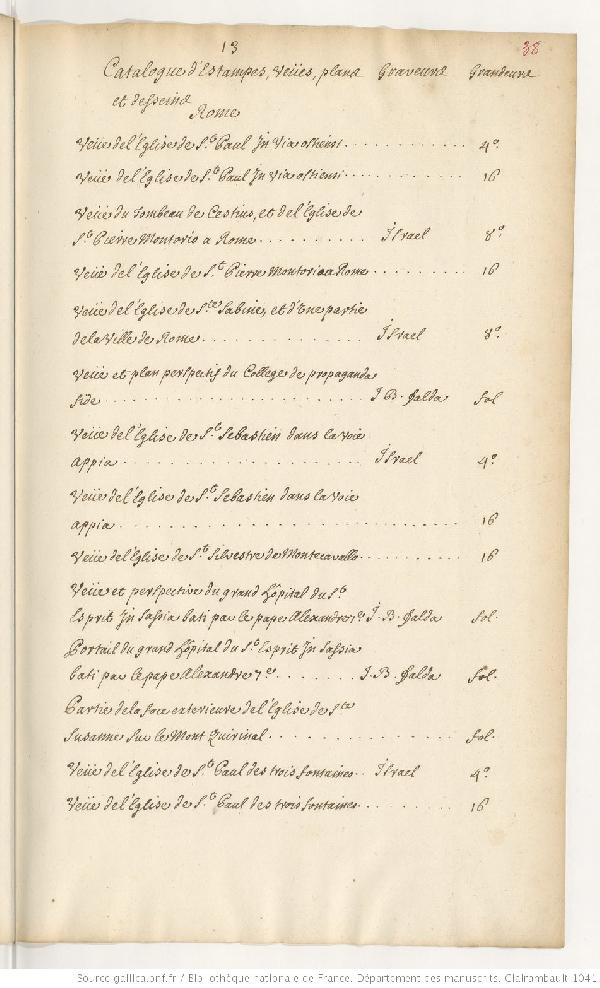 13
38
Catalogue d'Estampes, Veües, plans Graveurs Grandeurs
et desseins
Rome
Veüe de l'Eglise de St. Paul In Via ostiensi . . . . . . . . . . . 4º.
Veüe de l'Eglise de St. Paul In Via ostiensi . . . . . . . . . . . 16
Veüe du tombeau de Cestius, et de l'Eglise de
St. Pierre Montorio a Rome . . . . . . . . . . Israel 8º.
Veüe de l'Eglise de St. Pierre Montorio a Rome . . . . . . . . 16
Veüe de l'Eglise de Ste. Sabine, et d'Une partie
de la Ville de Rome . . . . . . . . . . . . . . Israel 8º.
Veüe et plan perspectif du College de propaganda
fide . . . . . . . . . . . . . . . . . . . . . . I. B. falda fol
Veüe de l'Eglise de St. Sebastien dans la Voie
appia . . . . . . . . . . . . . . . . . . . . Israel 4º
Veüe de l'Eglise de St. Sebastien dans la Voie
appia . . . . . . . . . . . . . . . . . . . . . . . . . . . . 16
Veüe de l'Eglise de St. Silvestre de Montecavallo . . . . . . . . 16
Veüe et perspective du grand hôpital du St.
Esprit In Sassia bati par le pape Alexandre 7e. I. B. falda fol.
Portail du grand hôpital du St. Esprit In Sassia
bati par le pape Alexandre 7e. . . . . . . . I. B. falda fol.
Partie de la face exterieure de l'Eglise de Ste
Susanne sur le Mont Quirinal . . . . . . . . . . . . . . . . fol.
Veüe de l'Eglise de St. Paul des trois fontaines . . Israel 4º.
Veüe de l'Eglise de St. Paul des trois fontaines . . . . . . . . 16
Source gallica.bnf.fr / Bibliothèque nationale de France. Département des manuscrits. Clairambault 1041